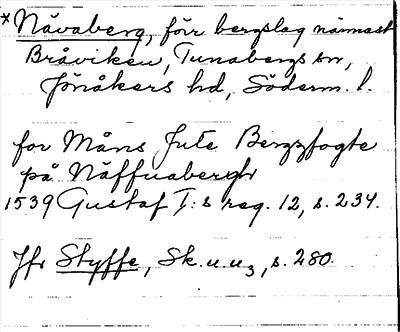 *Nävaberg, förr bergslag närmast
Bråviken, Tunabergs sn,
Jönåkers hd, Söderm. l.
for Måns Jute Bergzfogte
på Näffuabergh
1539 Gustaf I:s reg. 12, s. 234.
Jfr Styffe, Sk.u.u3, s. 280.